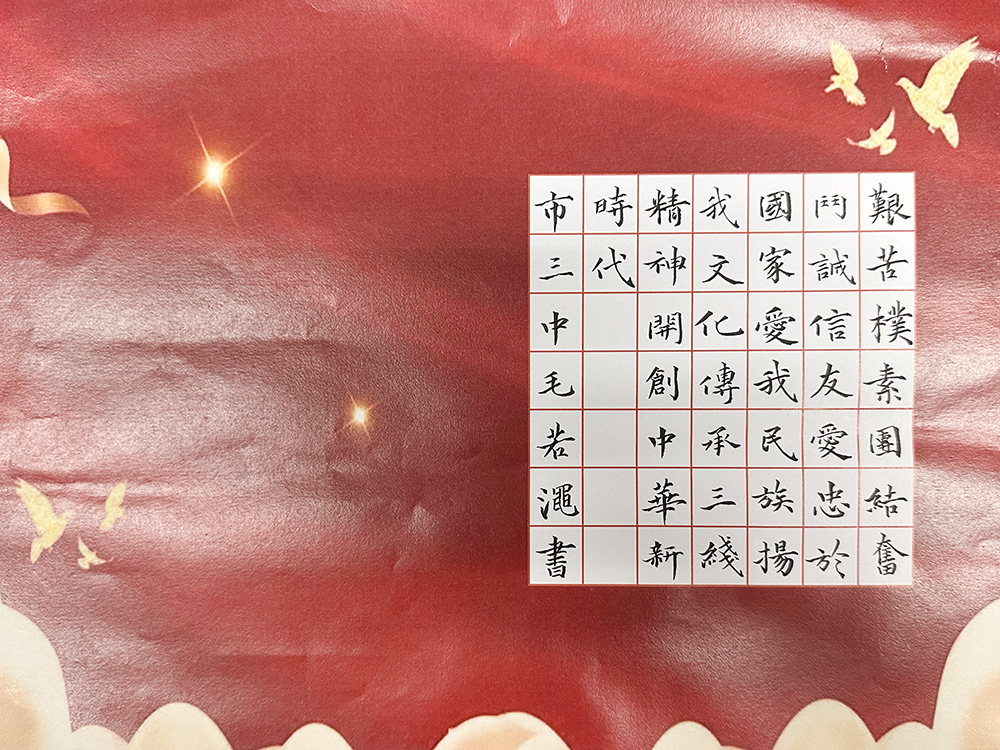 艱苦樸素團結奮
鬥誠信友愛忠於
國家愛我民族揚
我文化傳承三綫
精神開創中華新
時代
市三中毛若澠書